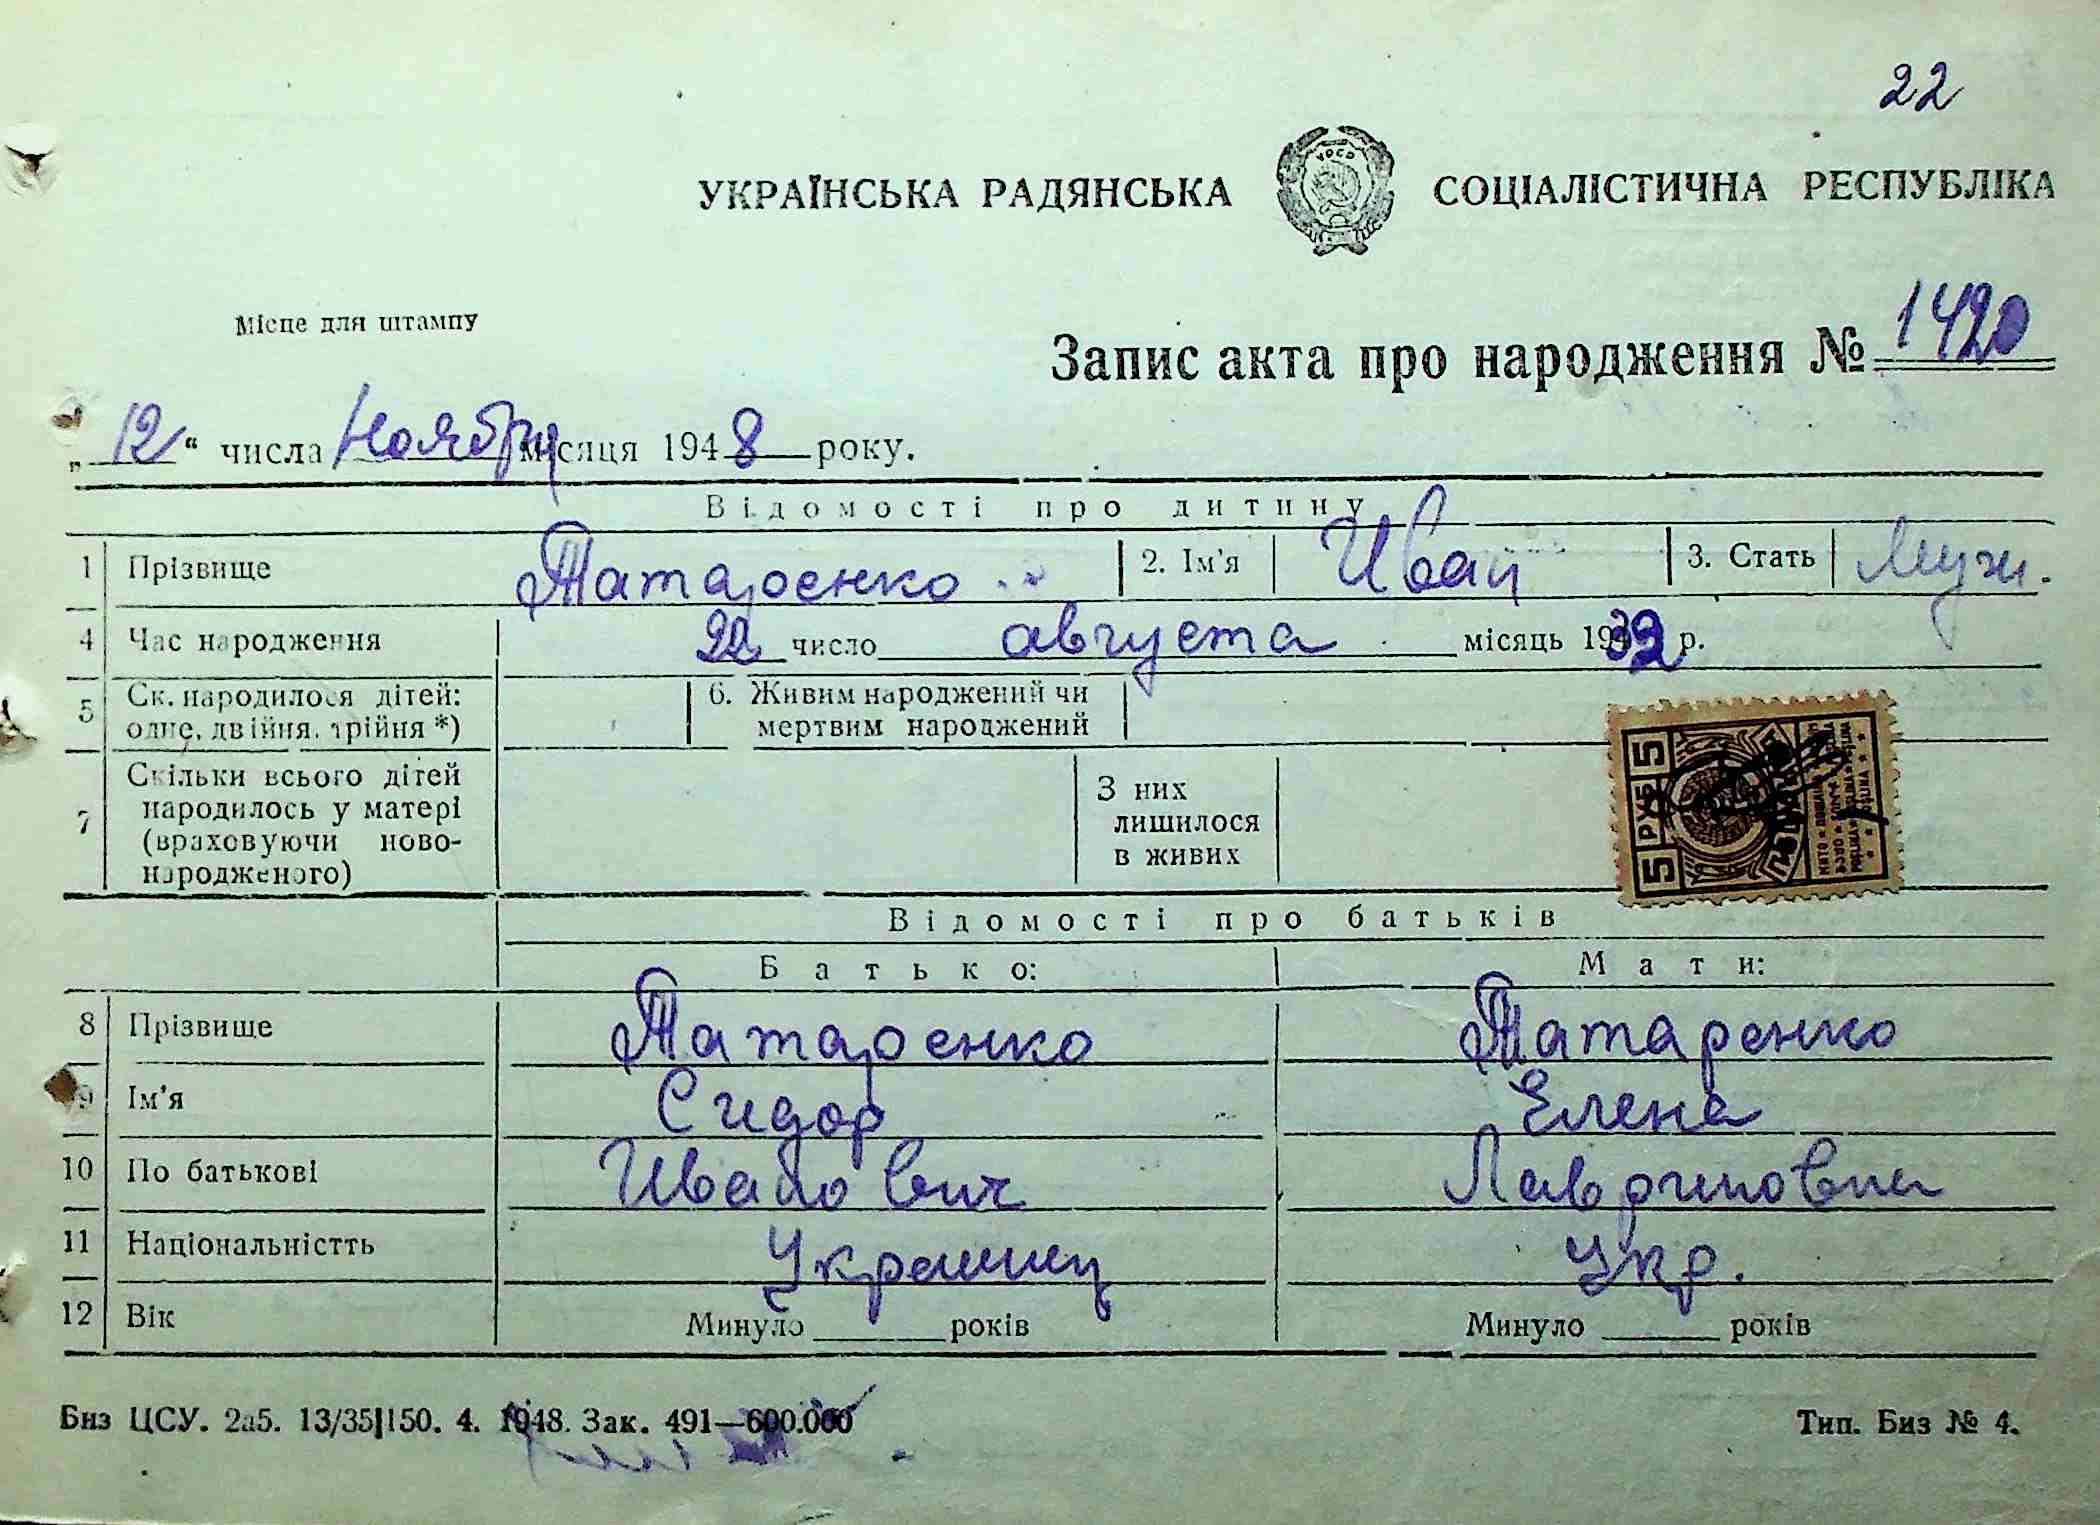 22
УКРАЇНСЬКА РАДЯНСЬКА СОЦІАЛІСТИЧНА РЕСПУБЛІКА
Місце для штампу
Запис акта про народження № 1420
„12“ числа Ноября місяця 1948 року.
Відомості про дитину
1 Прізвище Татаренко 2. Ім'я Иван 3. Стать Муж.
4 Час народження 22 число августа місяць 1932 р.
5 Ск. народилося дітей: одне, двійня, трійня *) 6. Живим народжений чи мертвим народжений
7 Скільки всього дітей народилось у матері (враховуючи новонародженого) З них лишилося в живих
5 РУБ 5
Відомості про батьків
Батько: Мати:
8 Прізвище Татаренко Татаренко
9 Ім'я Сидор Елена
10 По батькові Иванович Лавриновна
11 Національністть Украинец Укр.
12 Вік Минуло ____ років Минуло ____ років
Биз ЦСУ. 2а5. 13/35|150. 4. 1948. Зак. 491—600.000 Тип. Биз № 4.